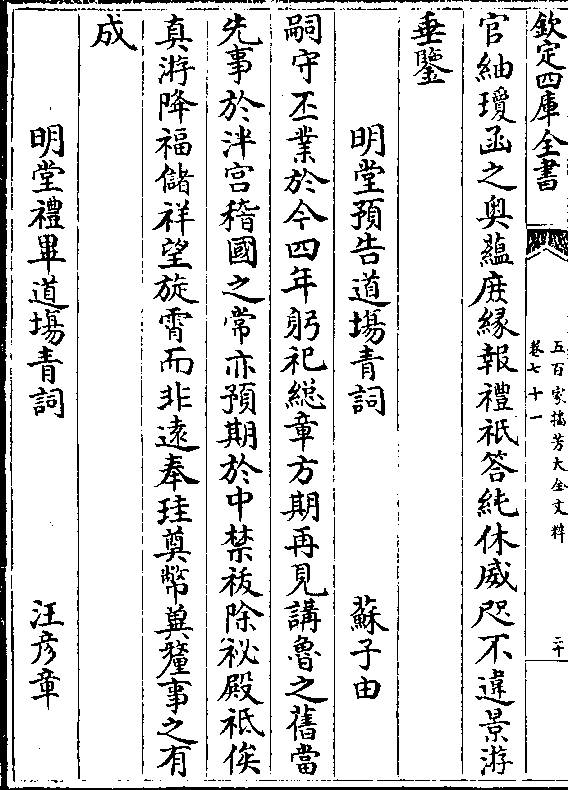 欽定四庫全書
五百家播芳大全文粹
卷七十一
二十
官紬瓊函之奥藴庻縁報禮祇答純休威咫不違景游
垂鑒
明堂預告道場青詞 蘇子由
嗣守丕業於今四年躬祀總章方期再見講魯之舊當
先事於泮宫稽國之常亦預期於中禁祓除祕殿祗俟
真游降福儲祥望旋霄而非遠奉珪奠幣兾釐事之有
成
明堂禮畢道場青詞 汪彦章